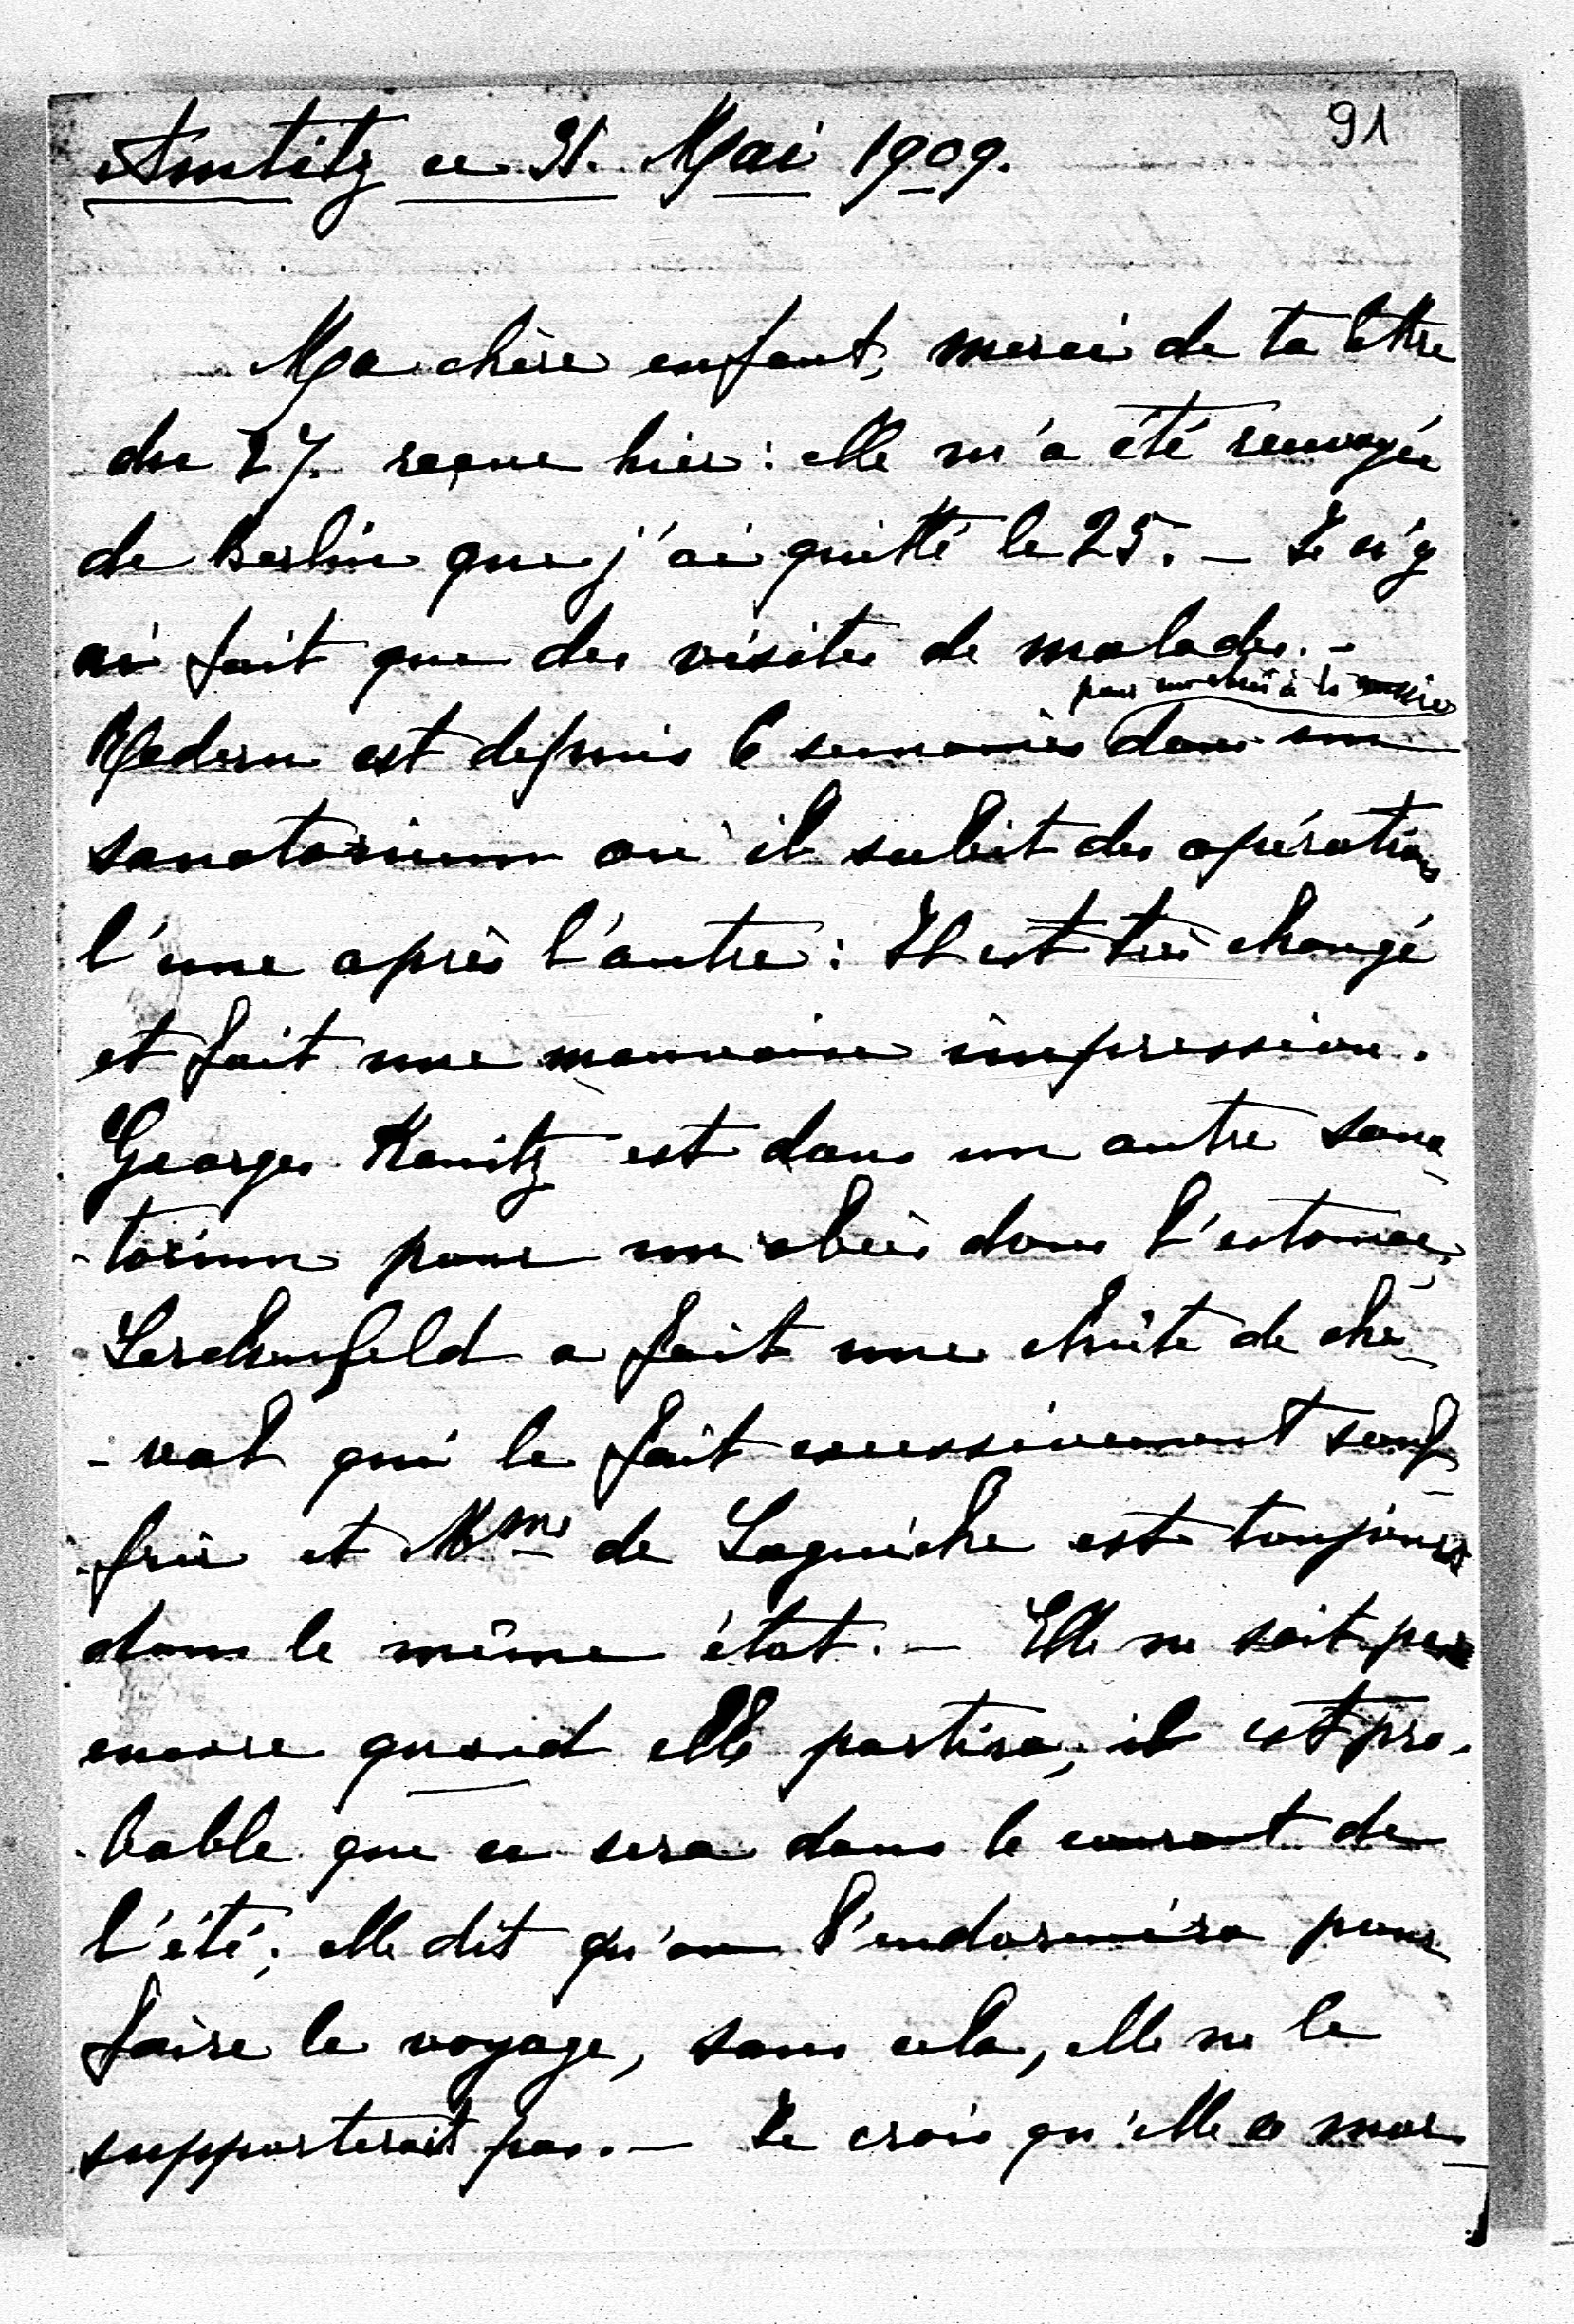 91
Amtitz ce 31. Mai 1909.
Ma chère enfant, merci de ta lettre
du 27. reçue hier : elle m'a été renvoyée
de Berlin que j'ai quitté le 25. – Je n'y
ai fait que des visites de malades. –
pour un abcès à la
Medem est depuis 6 semaines dans un
sanatorium où il subit des opérations
l'une après l'autre : Il est très changé
et fait une mauvaise impression.
Georges Kanitz est dans un autre sana-
-torium pour un abcès dans l'estomac,
Lerchenfeld a fait une chûte de che-
-val qui le fait excessivement souf-
-frir et Mme de Laguiche est toujours
dans le même état. – Elle ne sait pas
encore quand elle partira; il est pro-
-bable que ce sera dans le courant de
l'été; elle dit qu'on l'endormira pour
faire le voyage, sans cela, elle ne le
supporterait pas. – Je crois qu'elle a mar-